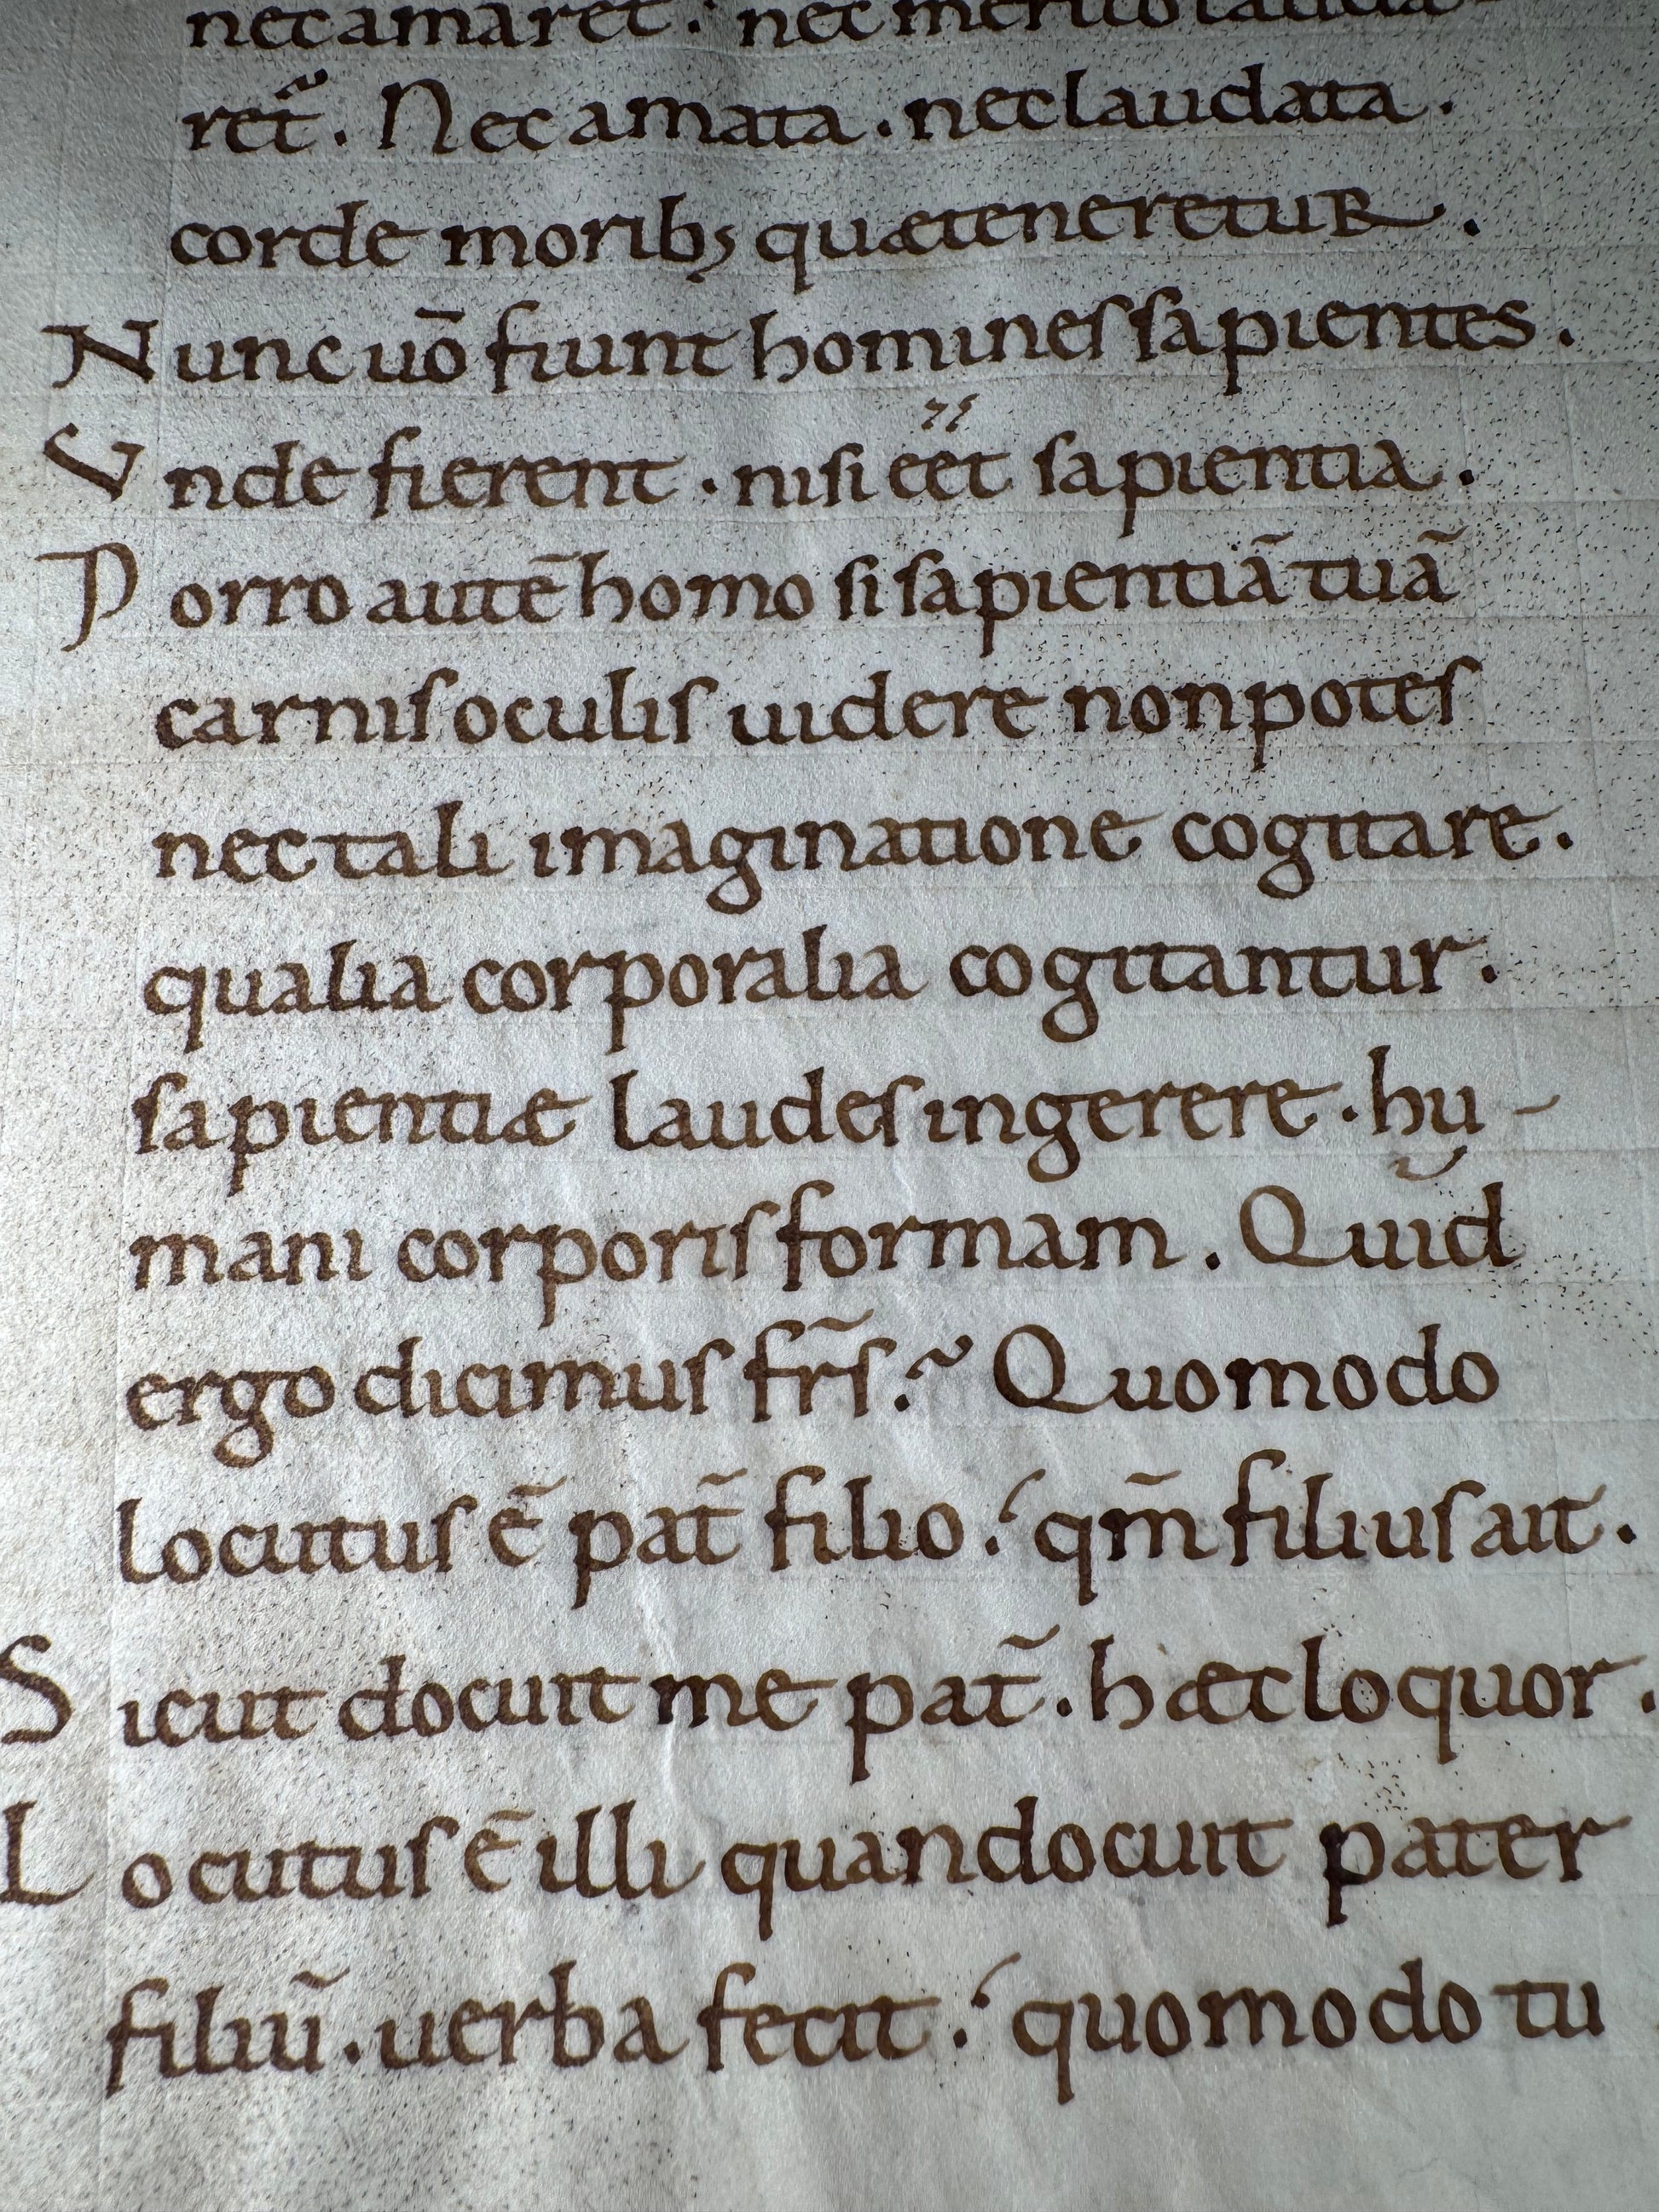 nec amaret: nec merito lauda-
ret᷑. Nec amata. nec laudata.
corde moribꝫ quæ teneretur.
Nunc uō fiunt homines sapientes.
Unde fierent. nisi eēt sapientia.
Porro autē homo si sapientiā tuā
carnis oculis uidere non potes
nec tali imaginatione cogitare.
qualia corporalia cogitantur.
sapientiæ laudes ingerere. hu-
mani corporis formam. Quid
ergo dicimus fr̄s? Quomodo
locutus ē pat̄ filio? qm̄ filius ait.
Sicut docuit me pat̄. hæc loquor.
Locutus ē illi quan docuit pater
filiū. uerba fecit? quomodo tu